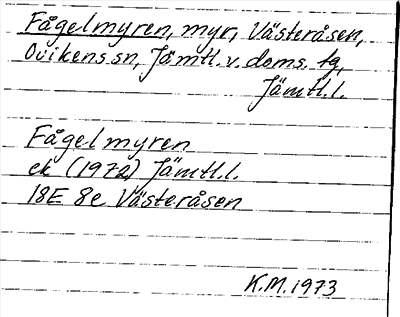 Fågelmyren, myr, Västeråsen,
Ovikens sn, Jämtl. v. doms. tg,
Jämtl.l.
Fågelmyren
ek (1972) Jämtl.l.
18E 8e Västeråsen
K.M. 1973